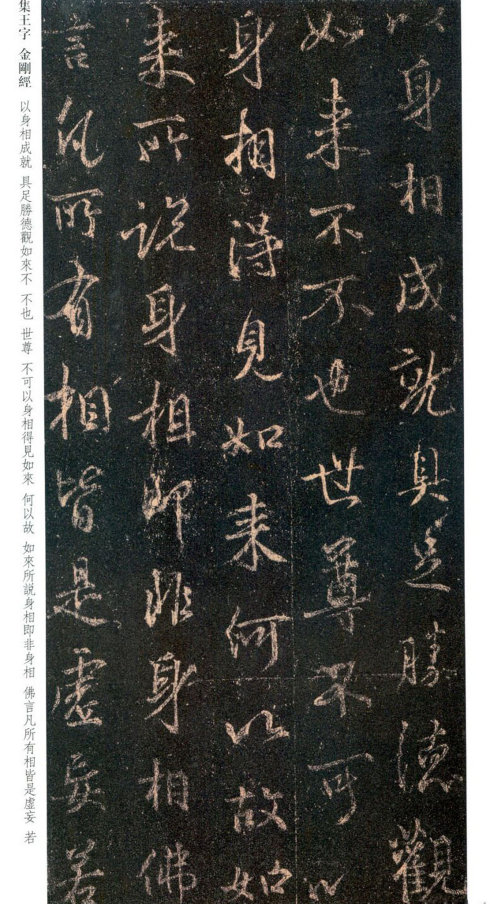 以身相成就具足勝德觀
如来不不也世尊不可以
身相得見如来何以故如
来所説身相即非身相佛
言凡所有相皆是虛妄若
集王字 金剛經 以身相成就 具足勝德觀如來不 不也 世尊 不可以身相得見如來 何以故 如來所説身相即非身相 佛言凡所有相皆是虛妄 若